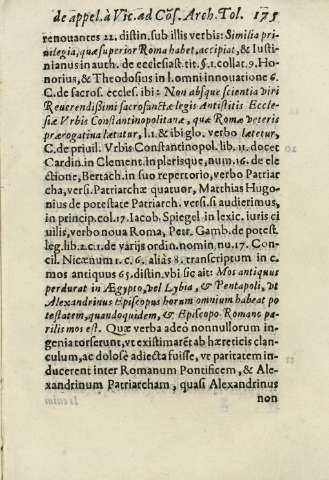 de appel. à Vic. ad Cõs. Arch. Tol. 175
renouantes 22. distin. sub illis verbis: Similia pri-
uilegia, quæ superior Roma habet, accipiat, & Iusti-
nianus in auth. de ecclesiast. tit. §. 1. collat. 9. Ho-
norius, & Theodosius in l. omni innouatione 6.
C. de sacros. eccles. ibi: Non absque scientia viri
Reuerendissimi sacrosanctæ legis Antistitis Eccle-
siæ Vrbis Constantinopolitanæ, quæ Romæ veteris
prærogatina lætatur, l. 1. & ibi glo. verbo lætetur,
C. de priuil. Vrbis Constantinopol. lib. 11. docet
Cardin. in Clement. in plerisque, num. 16. de ele
ctione, Bertach. in suo repertorio, verbo Patriar
cha, versi. Patriarchæ quatuor, Matthias Hugo-
nius de potestate Patriarch. versi. si audierimus,
in princip. col. 17. Iacob. Spiegel in lexic. iuris ci
uilis, verbo noua Roma, Petr. Gamb. de potest.
leg. lib. 2. c. 1. de varijs ordin. nomin. nu. 17. Con-
cil. Nicænum 1. c. 6. aliàs 8. transcriptum in c.
mos antiquus 65. distin. vbi sic ait: Mos antiquus
perdurat in Ægypto, vel Lybia, & Pentapoli, vt
Alexandrinus Episcopus horum omnium habeat po
testatem, quandoquidem, & Episcopo Romano pa-
rilis mos est. Quæ verba adeò nonnullorum in-
genia torserunt, vt existimarẽt ab hæreticis clan-
culum, ac dolosè adiecta fuisse, vt paritatem in-
ducerent inter Romanum Pontificem, & Ale-
xandrinum Patriarcham, quasi Alexandrinus
non